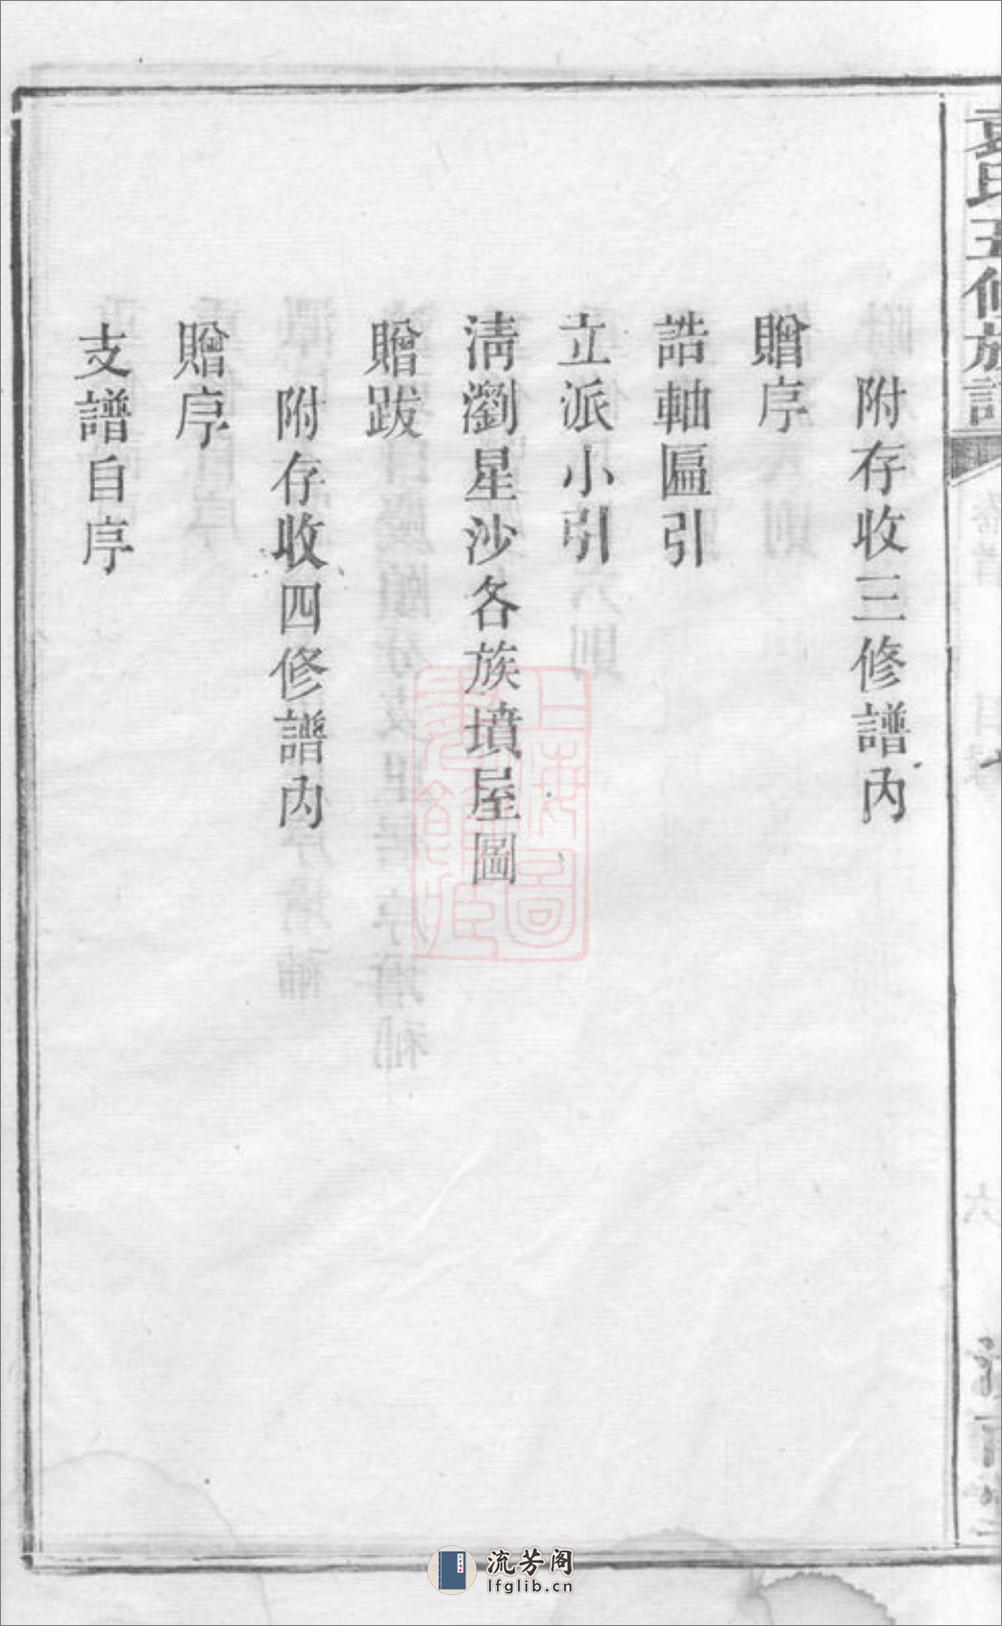 袁氏五修族譜
附存收三修譜內
贈序
誥軸匾引
立派小引
淸瀏星沙各族墳屋圖
贈跋
附存收四修譜內
贈序
支譜自序
六
上海圖
流芳阁
lfglib.cn